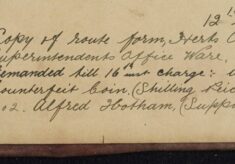 12
Copy of route form, Herts C
Superintendents Office Ware,
Remanded till 16th inst charge:-
Counterfeit Coin, (Shilling
02. Alfred Hotham, Supp